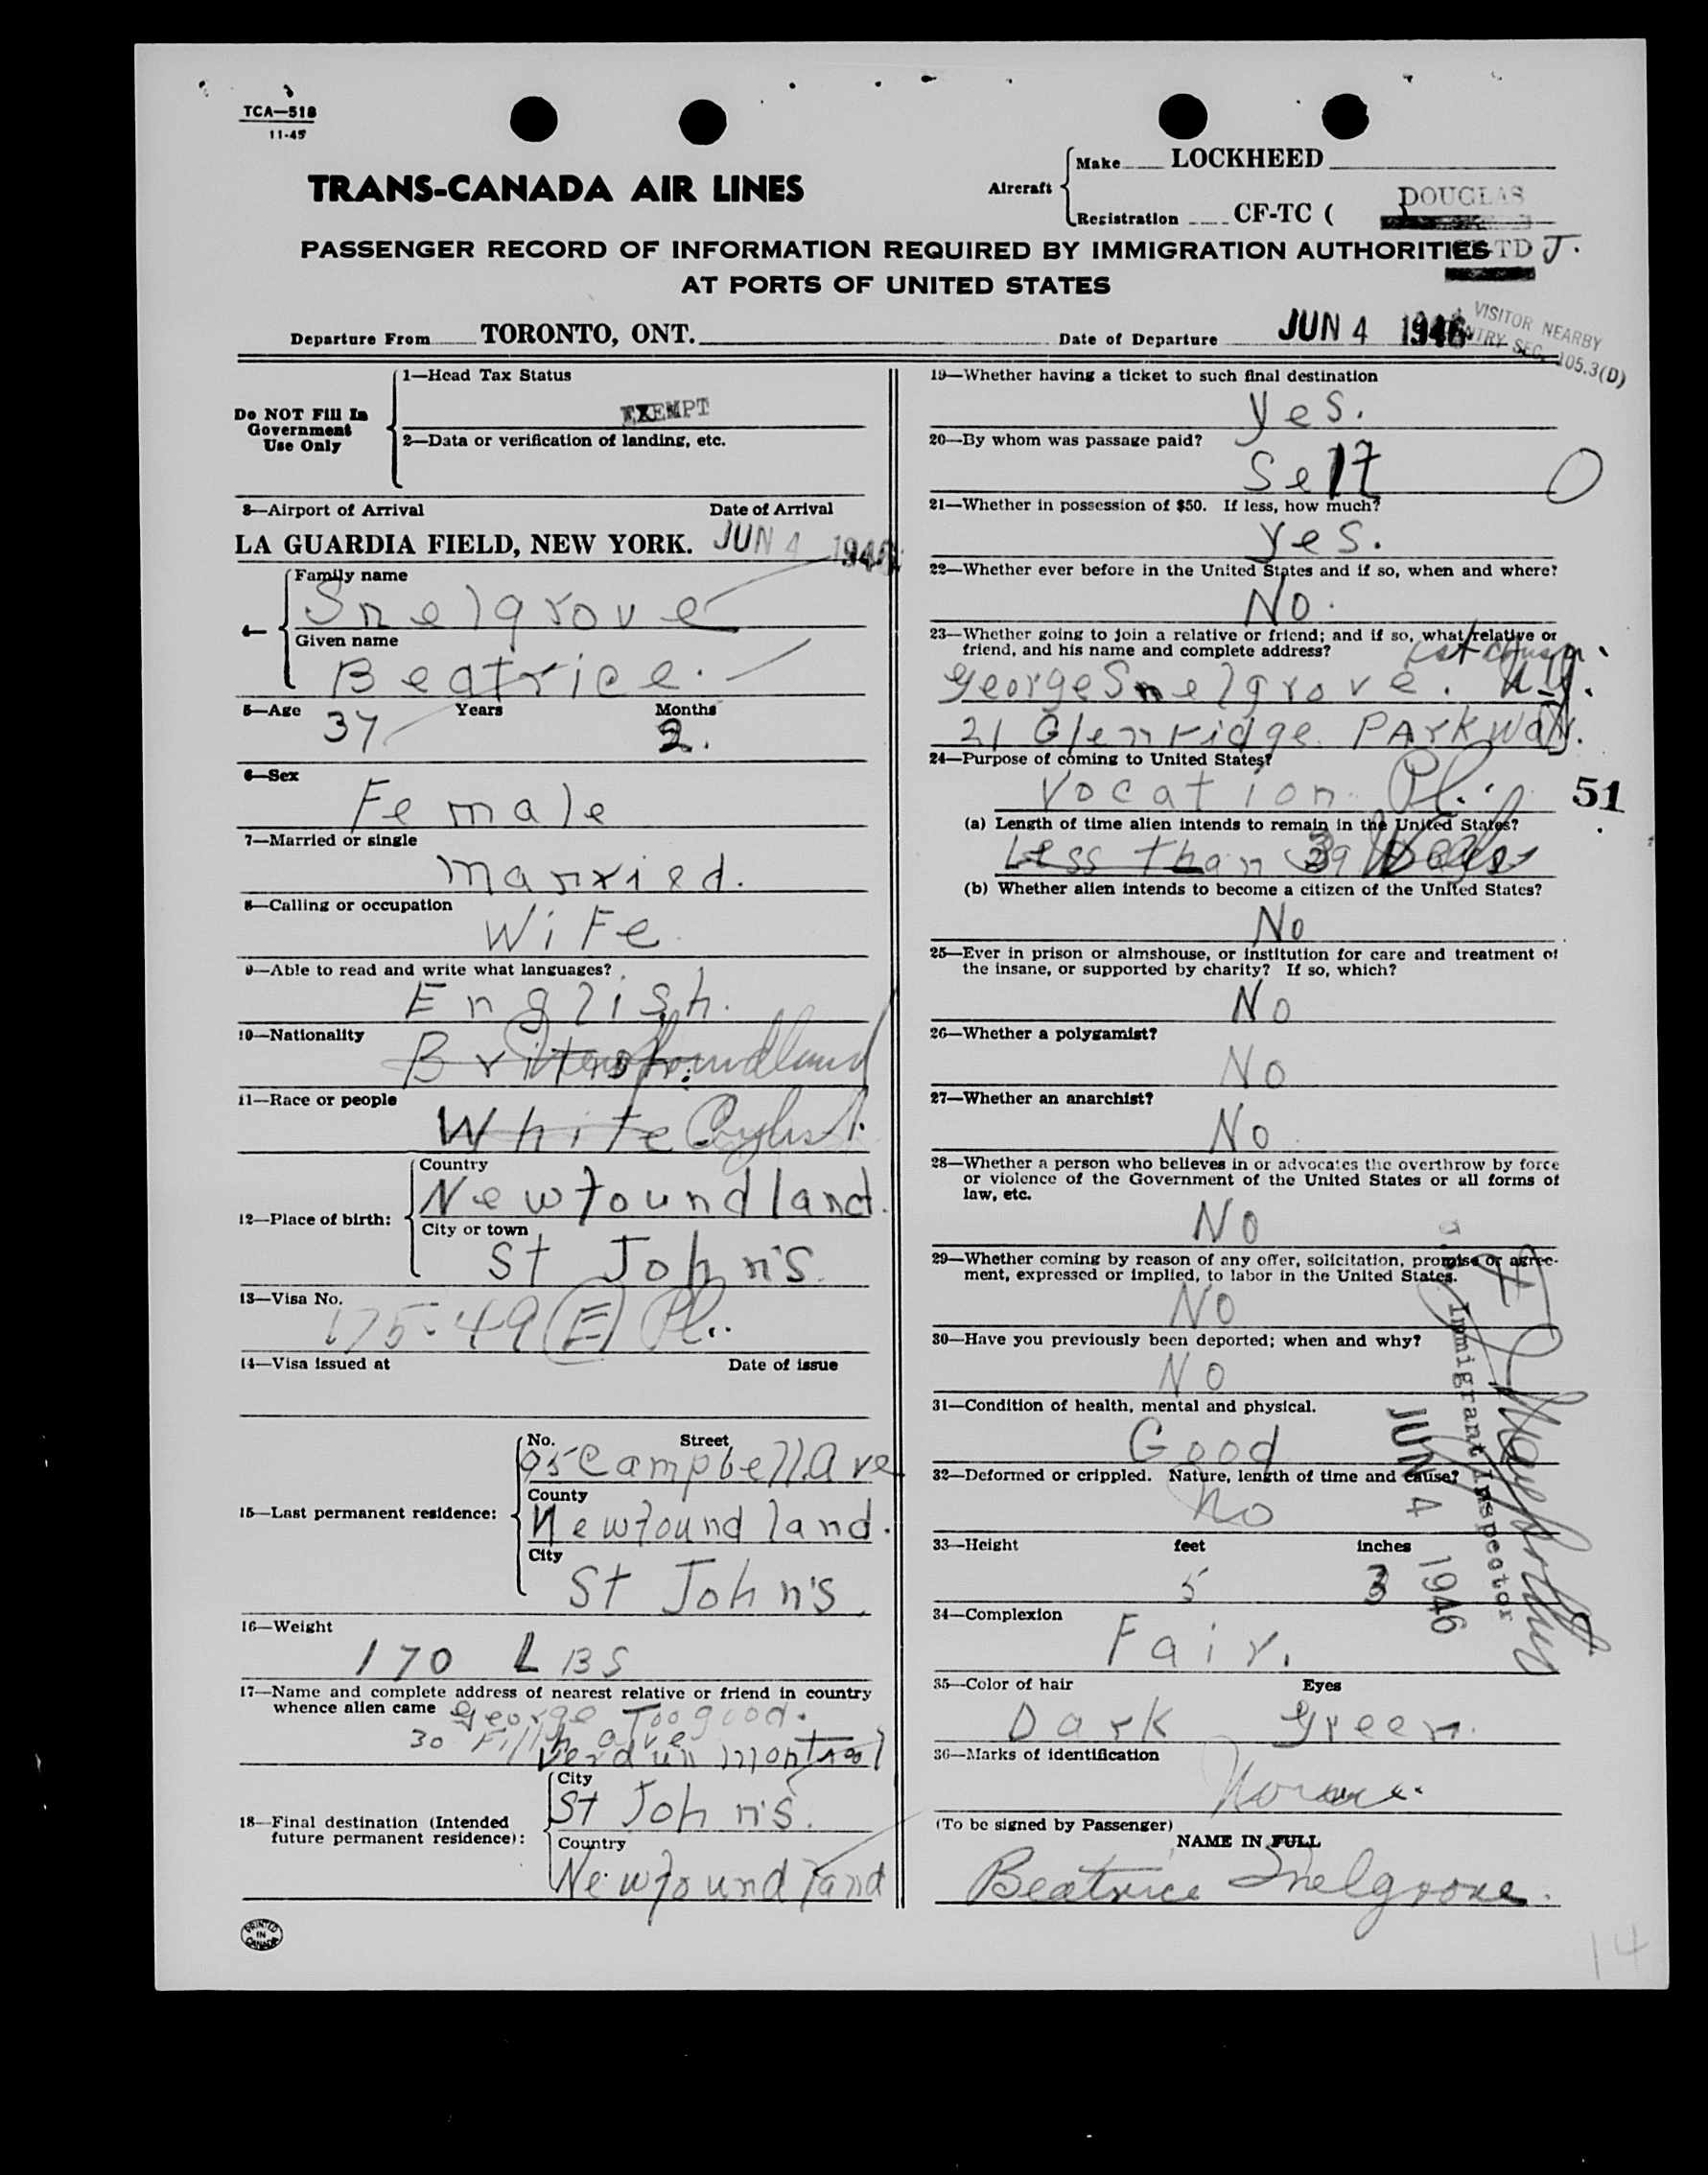 TCA—518
11-45
TRANS-CANADA AIR LINES
Aircraft
Make LOCKHEED
DOUGLAS
Registration CF-TC (
TD J.
PASSENGER RECORD OF INFORMATION REQUIRED BY IMMIGRATION AUTHORITIES
AT PORTS OF UNITED STATES
VISITOR NEARBY
ENTRY SEC. 105.3(D)
Departure From TORONTO, ONT.
Date of Departure JUN 4 1946
Do NOT Fill In
Government
Use Only
1—Head Tax Status
EXEMPT
2—Data or verification of landing, etc.
3—Airport of Arrival Date of Arrival
LA GUARDIA FIELD, NEW YORK. JUN 4 1946
4—
Family name
Snelgrove
Given name
Beatrice.
5—Age 37 Years Months 2.
6—Sex
Female
7—Married or single
Married.
8—Calling or occupation
Wife
9—Able to read and write what languages?
English.
10—Nationality
British. Newfoundland
11—Race or people
White English.
12—Place of birth:
Country
Newfoundland.
City or town
St John's.
13—Visa No.
175-49 (E) Pl..
14—Visa issued at Date of issue
15—Last permanent residence:
No. Street
95 Campbell Ave
County
Newfoundland.
City
St John's.
16—Weight
170 LBS
17—Name and complete address of nearest relative or friend in country
whence alien came George Toogood.
30 ave
Verdun Montreal
18—Final destination (Intended
future permanent residence):
City
St John's.
Country
Newfoundland
PRINTED
IN
CANADA
19—Whether having a ticket to such final destination
Yes.
20—By whom was passage paid?
Self
21—Whether in possession of $50. If less, how much?
Yes.
22—Whether ever before in the United States and if so, when and where?
No.
23—Whether going to join a relative or friend; and if so, what relative or
friend, and his name and complete address? 1st Cousin.
George Snelgrove. N.J.
21 Glenridge Parkway.
24—Purpose of coming to United States?
Vocation Pl.
51
(a) Length of time alien intends to remain in the United States?
Less Than 29 Days
(b) Whether alien intends to become a citizen of the United States?
No
25—Ever in prison or almshouse, or institution for care and treatment of
the insane, or supported by charity? If so, which?
No
26—Whether a polygamist?
No
27—Whether an anarchist?
No
28—Whether a person who believes in or advocates the overthrow by force
or violence of the Government of the United States or all forms of
law, etc.
No
29—Whether coming by reason of any offer, solicitation, promise or agree-
ment, expressed or implied, to labor in the United States.
No
30—Have you previously been deported; when and why?
No
31—Condition of health, mental and physical.
Good
32—Deformed or crippled. Nature, length of time and cause?
No
33—Height feet inches
5 3
Immigrant Inspector
JUN 4 1946
34—Complexion
Fair.
35—Color of hair Eyes
Dark Green.
36—Marks of identification
None.
(To be signed by Passenger)
NAME IN FULL
Beatrice Snelgrove.
14